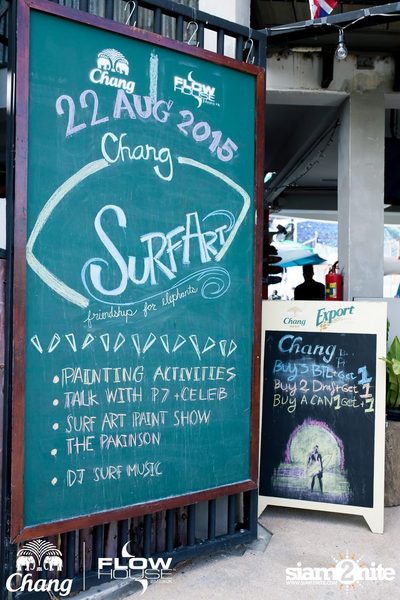 Chang
FLOW
HOUSE
22 AUG 2015
Chang
SURFART
friendship for elephants
• PAINTING ACTIVITIES
• TALK WITH P7 + CELEB
• SURF ART PAINT SHOW
• THE PAKINSON
• DJ SURF MUSIC
Chang Export
Chang
Buy 3 BTL Get 1
Buy 2 Draft Get 1
Buy A CAN 1 Get +1
Chang
FLOW
HOUSE
siam2nite